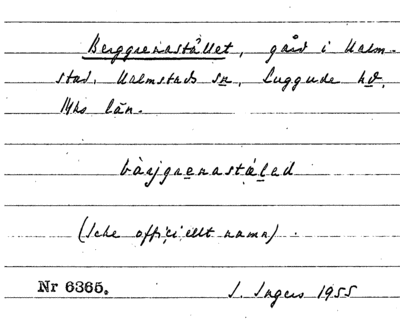 Berggrenastället, gård i Malm-
stad. Malmstads sn, Luggude hd,
Mhs län.
bàrjgrenastáled
(Icke officiellt namn).
Nr 6365. I. Ingers 1955